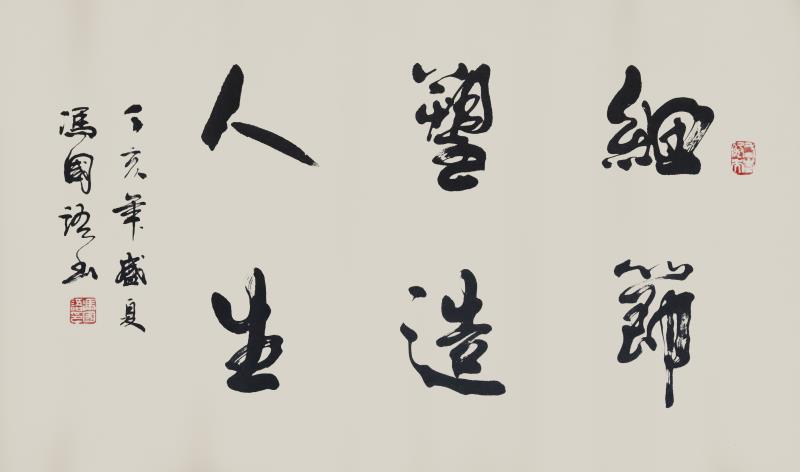 細節
塑造
人生
丁亥年盛夏
馮國語書